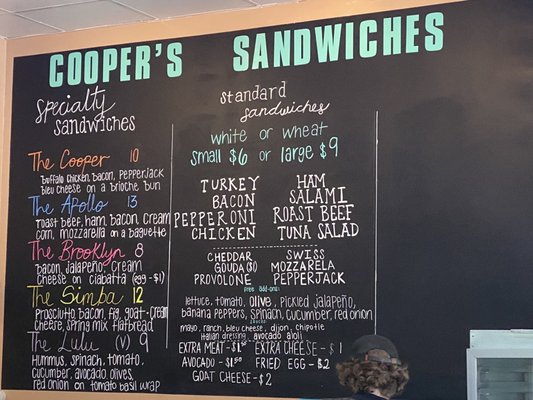 COOPER'S SANDWICHES
Specialty
sandwiches
The Cooper 10
buffalo chicken, bacon, pepperjack
bleu cheese on a brioche bun
The Apollo 13
roast beef, ham, bacon, cream
corn, mozzarella on a baguette
The Brooklyn 8
bacon, jalapeño, cream
cheese on ciabatta (egg - $1)
The Simba 12
prosciutto, bacon, fig, goat-cream
cheese, spring mix flatbread
The Lulu (V) 9
Hummus, spinach, tomato,
cucumber, avocado olives,
red onion on tomato basil wrap
standard
sandwiches
white or wheat
small $6 or large $9
TURKEY HAM
BACON SALAMI
PEPPERONI ROAST BEEF
CHICKEN TUNA SALAD
CHEDDAR SWISS
GOUDA ($1) MOZZARELA
PROVOLONE PEPPERJACK
free add-ons:
lettuce, tomato, olive, pickled jalapeño,
banana peppers, spinach, cucumber, red onion
mayo, ranch, bleu cheese, dijon, chipotle
italian dressing, avocado aioli
EXTRA MEAT - $1.50 EXTRA CHEESE - $1
AVOCADO - $1.50 FRIED EGG - $2
GOAT CHEESE - $2